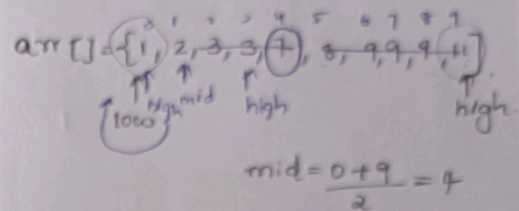 0 1 2 3 4 5 6 7 8 9
arr[]={1, 2, 3, 3, 7, 8, 9, 9, 9, 11}
low high mid high high
mid = 0+9 / 2 = 4